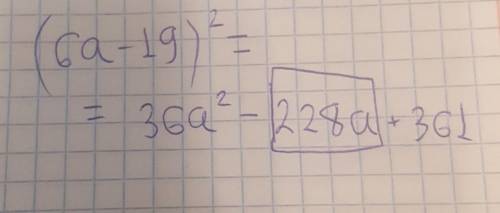 (6a-19)²=
= 36a² - 228a + 361